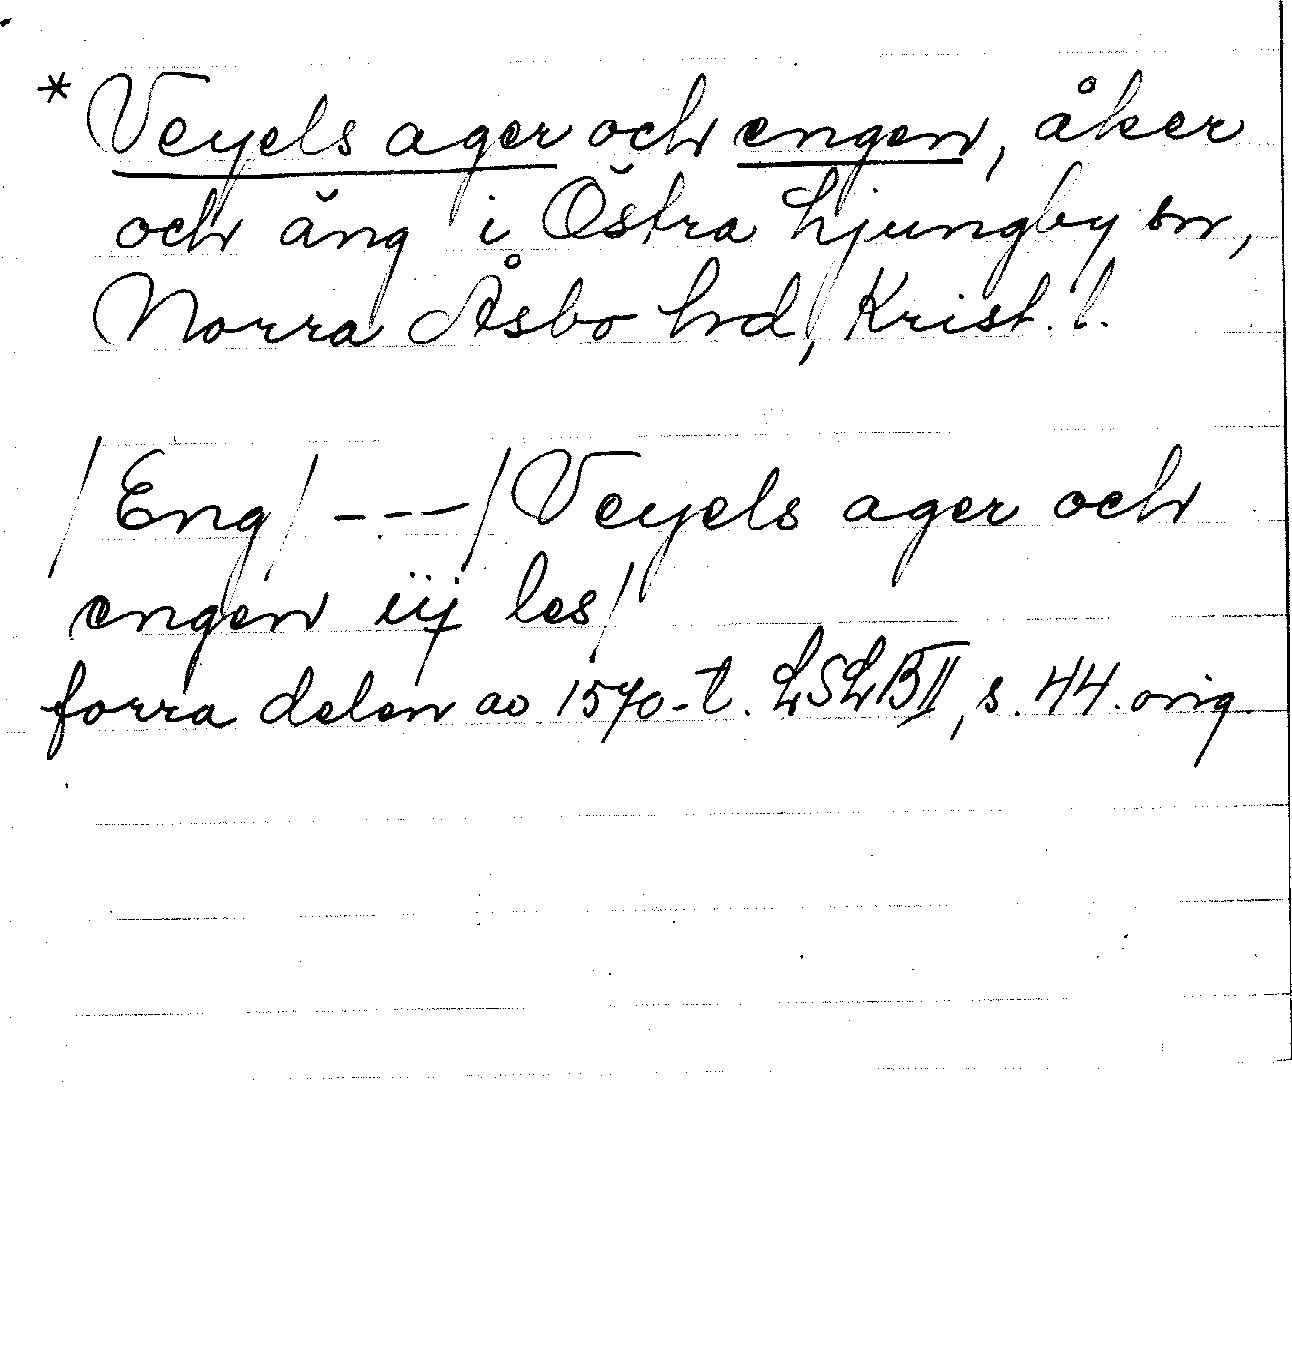 * Veyels ager och engen, åker
och äng i Östra Ljungby sn,
Norra Åsbo hd, Krist. l.
/Eng/ ---/Veyels ager och
engen iij les/
förra delen av 1570-t. LSLB II, s. 44. orig.